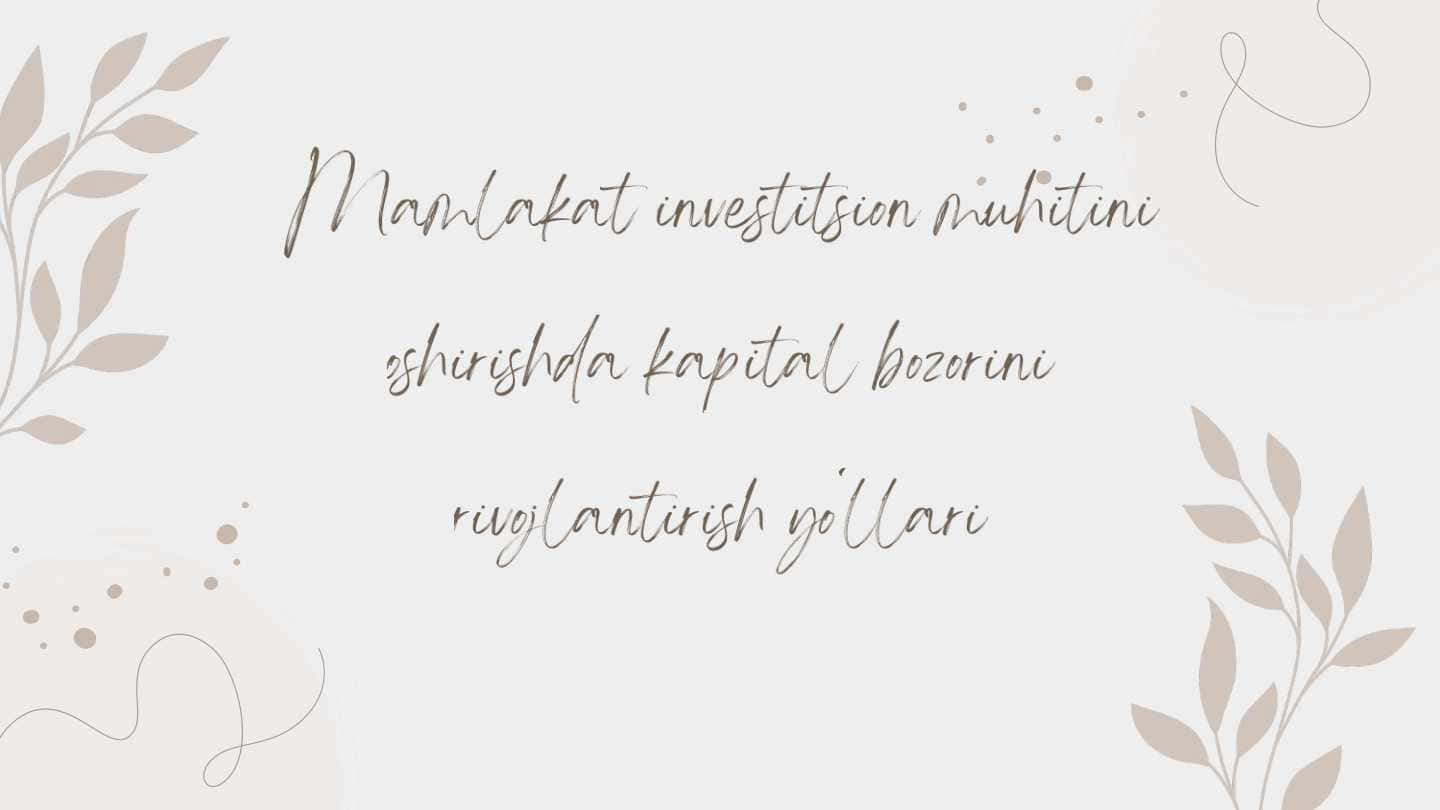 Mamlakat investitsion muhitini
oshirishda kapital bozorini
rivojlantirish yo'llari